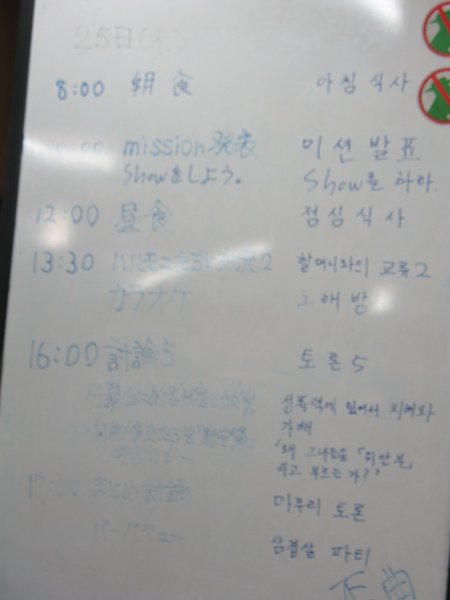 25日
8:00 朝食 아침 식사
mission発表 미션 발표
Showをしよう。 Show를 하라.
12:00 昼食 점심식사
13:30 ハルモニ 2 할머니와의 교류2
カラオケ 노래방
16:00 討論5 토론 5
성폭력에 있어서 피해와
가해
"왜 그녀들을 「위안부」
라고 부르는가?"
17:00 まとめ討論 마무리 토론
バーベキュー 삼겹살 파티